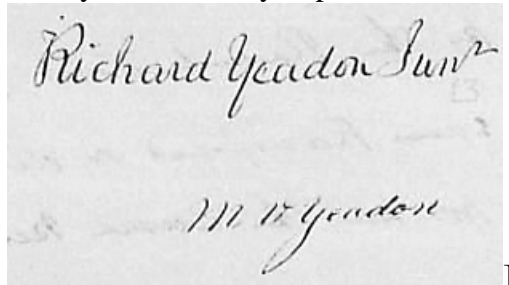 Richard Yeadon Junr
M W Yeadon